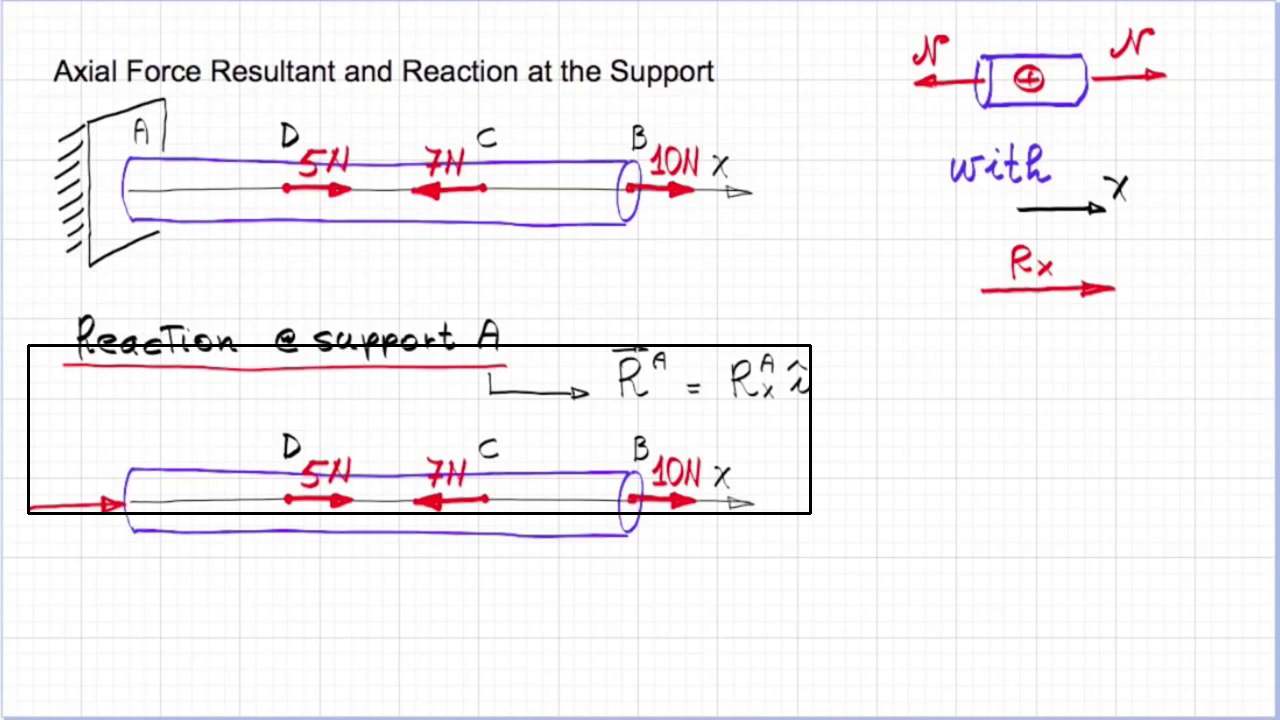 Axial Force Resultant and Reaction at the Support
N N
A D 5N 7N C B 10N X
with
X
Rx
Reaction @ support A
R^A = R_x^A î
D 5N 7N C B 10N X